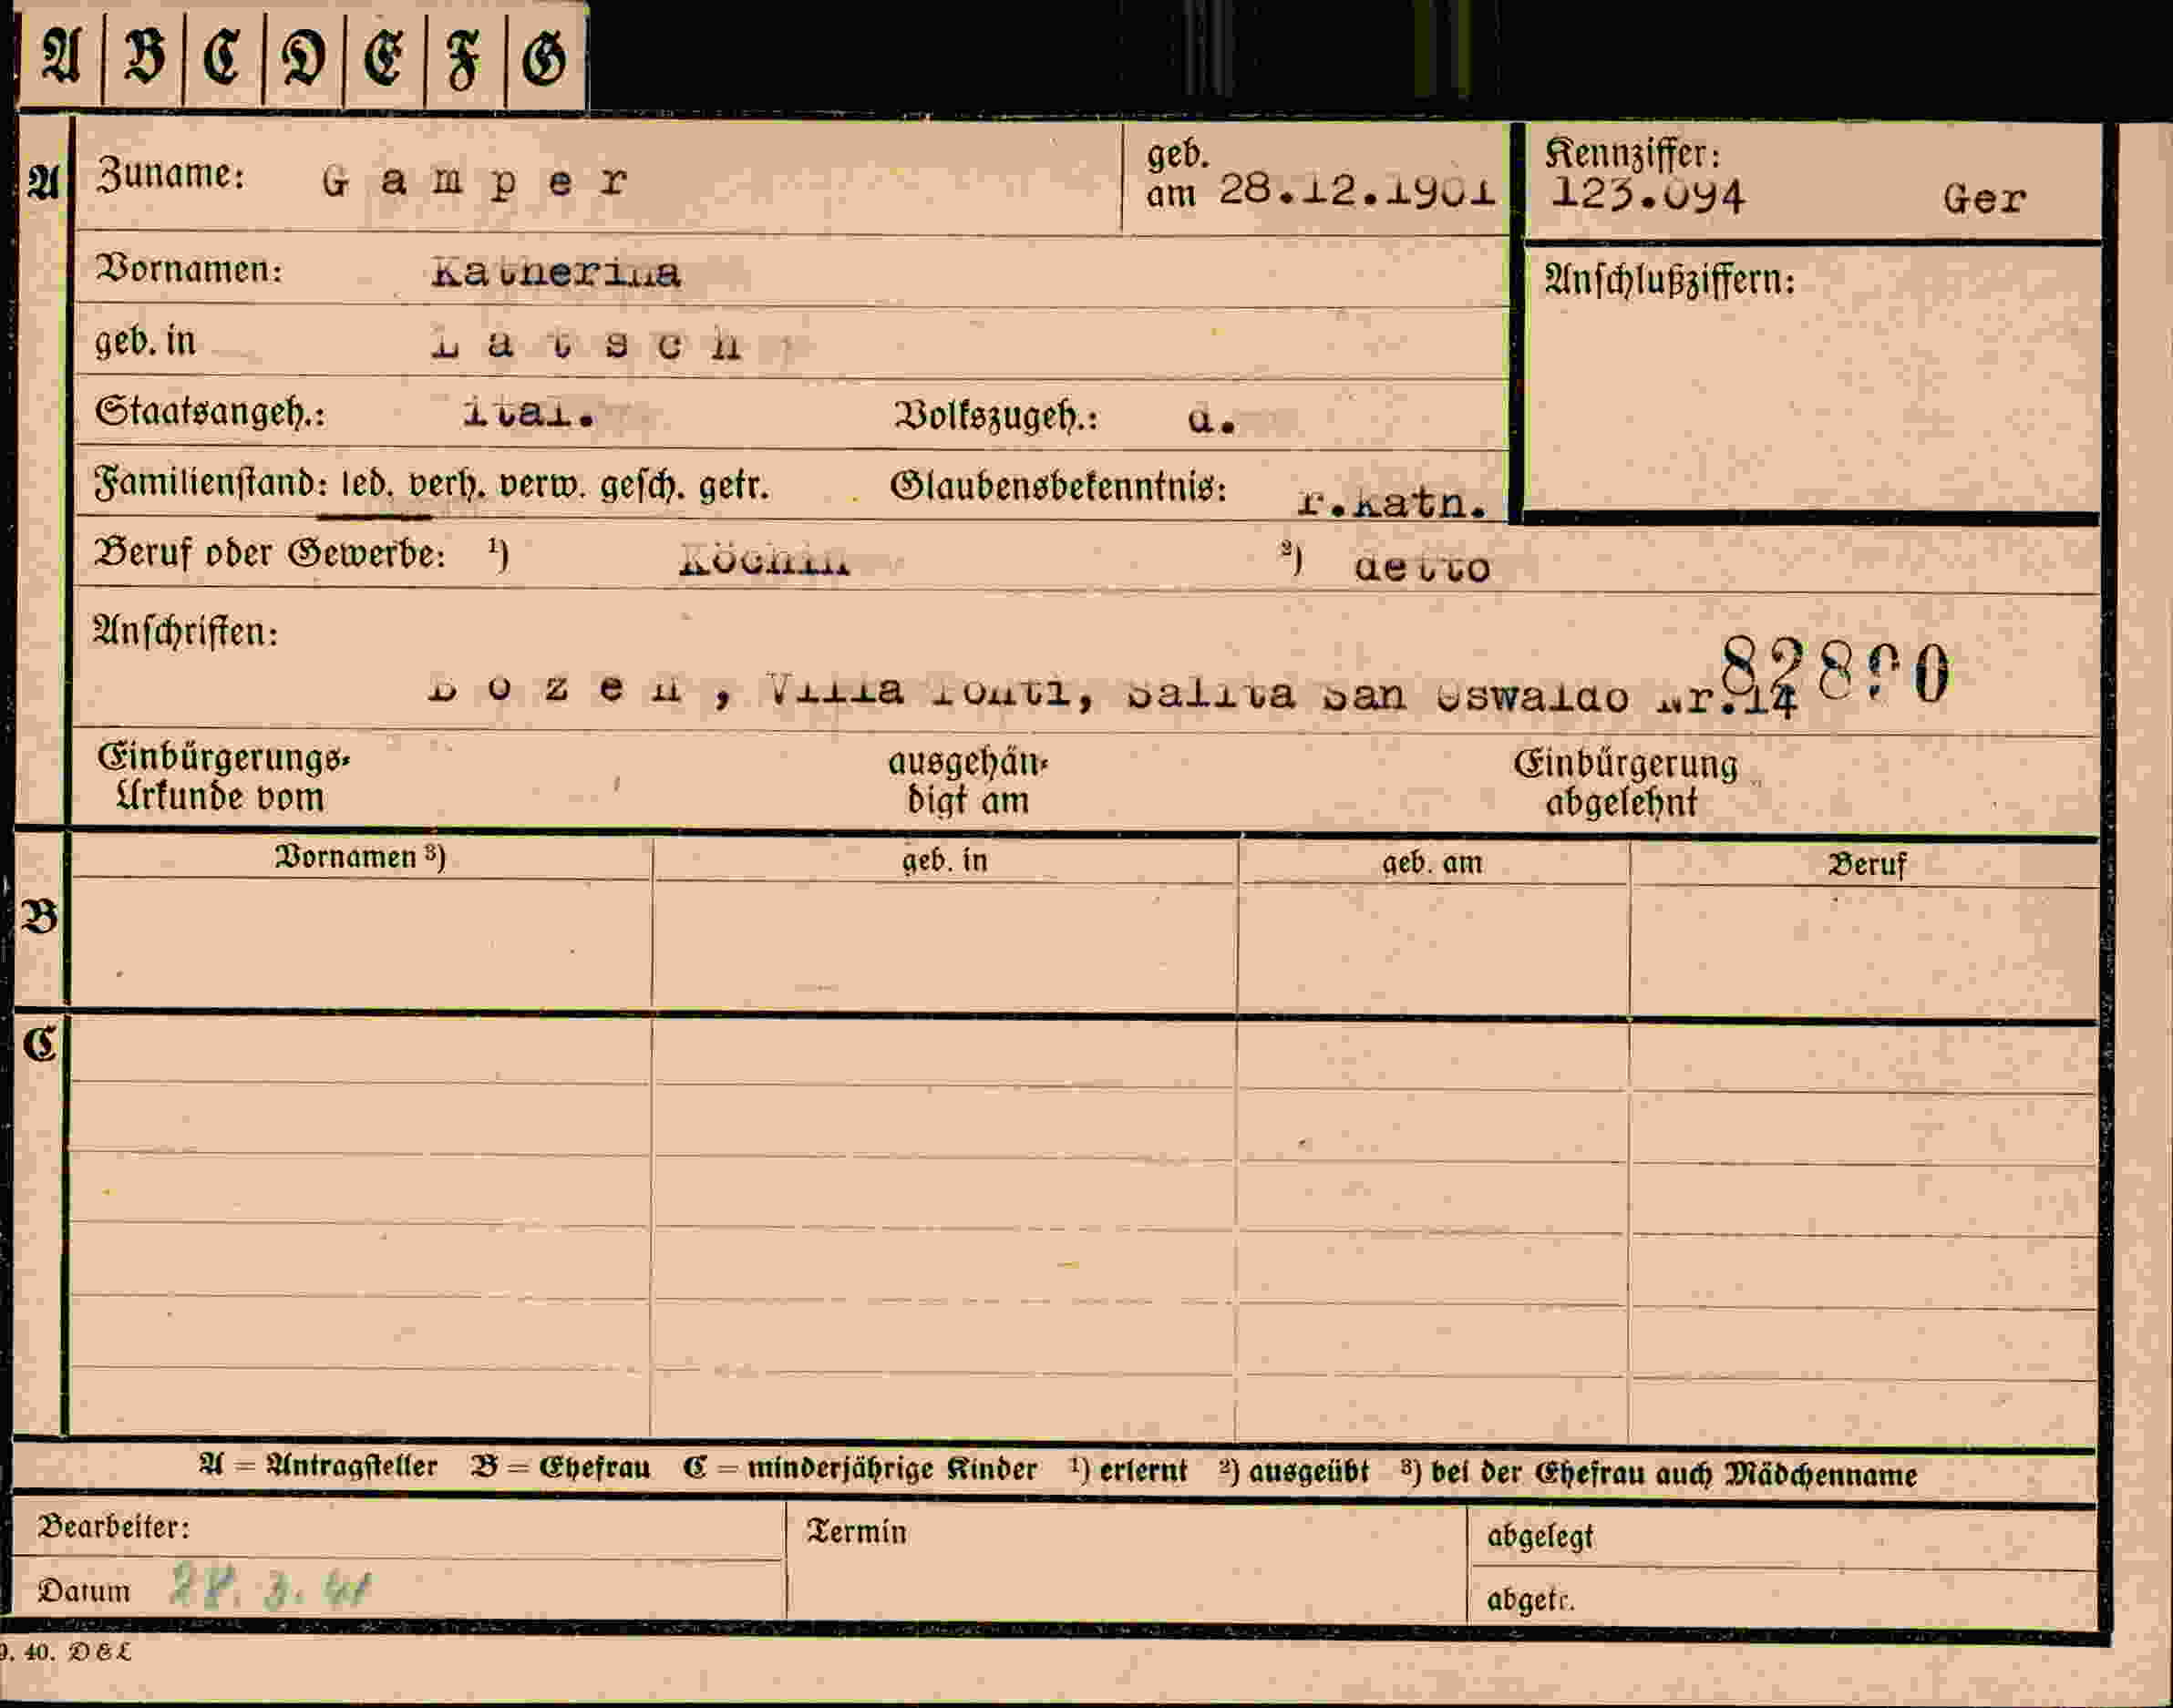 A B C D E F G
A Zuname: Gamper geb. am 28.12.1901 Kennziffer: 123.094 Ger
Vornamen: Katherina
Anschlußziffern:
geb. in Latsch
Staatsangeh.: ital. Volkszugeh.: d.
Familienstand: led. verh. verw. gesch. getr. Glaubensbekenntnis: r.kath.
Beruf oder Gewerbe: ¹) Köchin ²) detto
Anschriften:
Bozen, Villa Ponti, Salita San Oswaldo Nr.14
Einbürgerungs-Urkunde vom ausgehändigt am Einbürgerung abgelehnt
Vornamen ³) geb. in geb. am Beruf
B
C
A = Antragsteller B = Ehefrau C = minderjährige Kinder ¹) erlernt ²) ausgeübt ³) bei der Ehefrau auch Mädchenname
Bearbeiter: Termin abgelegt
Datum abgetr.
9. 40. D&L